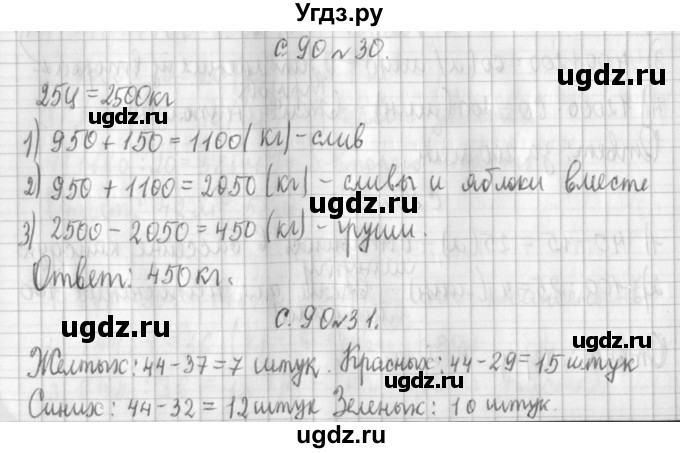 Угдз.ру
с. 90 № 30.
25ц = 2500кг
1) 950 + 150 = 1100(кг) - слив
2) 950 + 1100 = 2050 (кг) - сливы и яблоки вместе
3) 2500 - 2050 = 450 (кг) - груши.
Ответ: 450кг.
с. 90 № 31.
Желтых: 44-37=7 штук. Красных: 44-29=15 штук
Синих: 44-32=12 штук Зеленых: 10 штук.
ugdz.ru
ugdz.ru
ugdz.ru
ugdz.ru
ugdz.ru
ugdz.ru
ugdz.ru
ugdz.ru
ugdz.ru